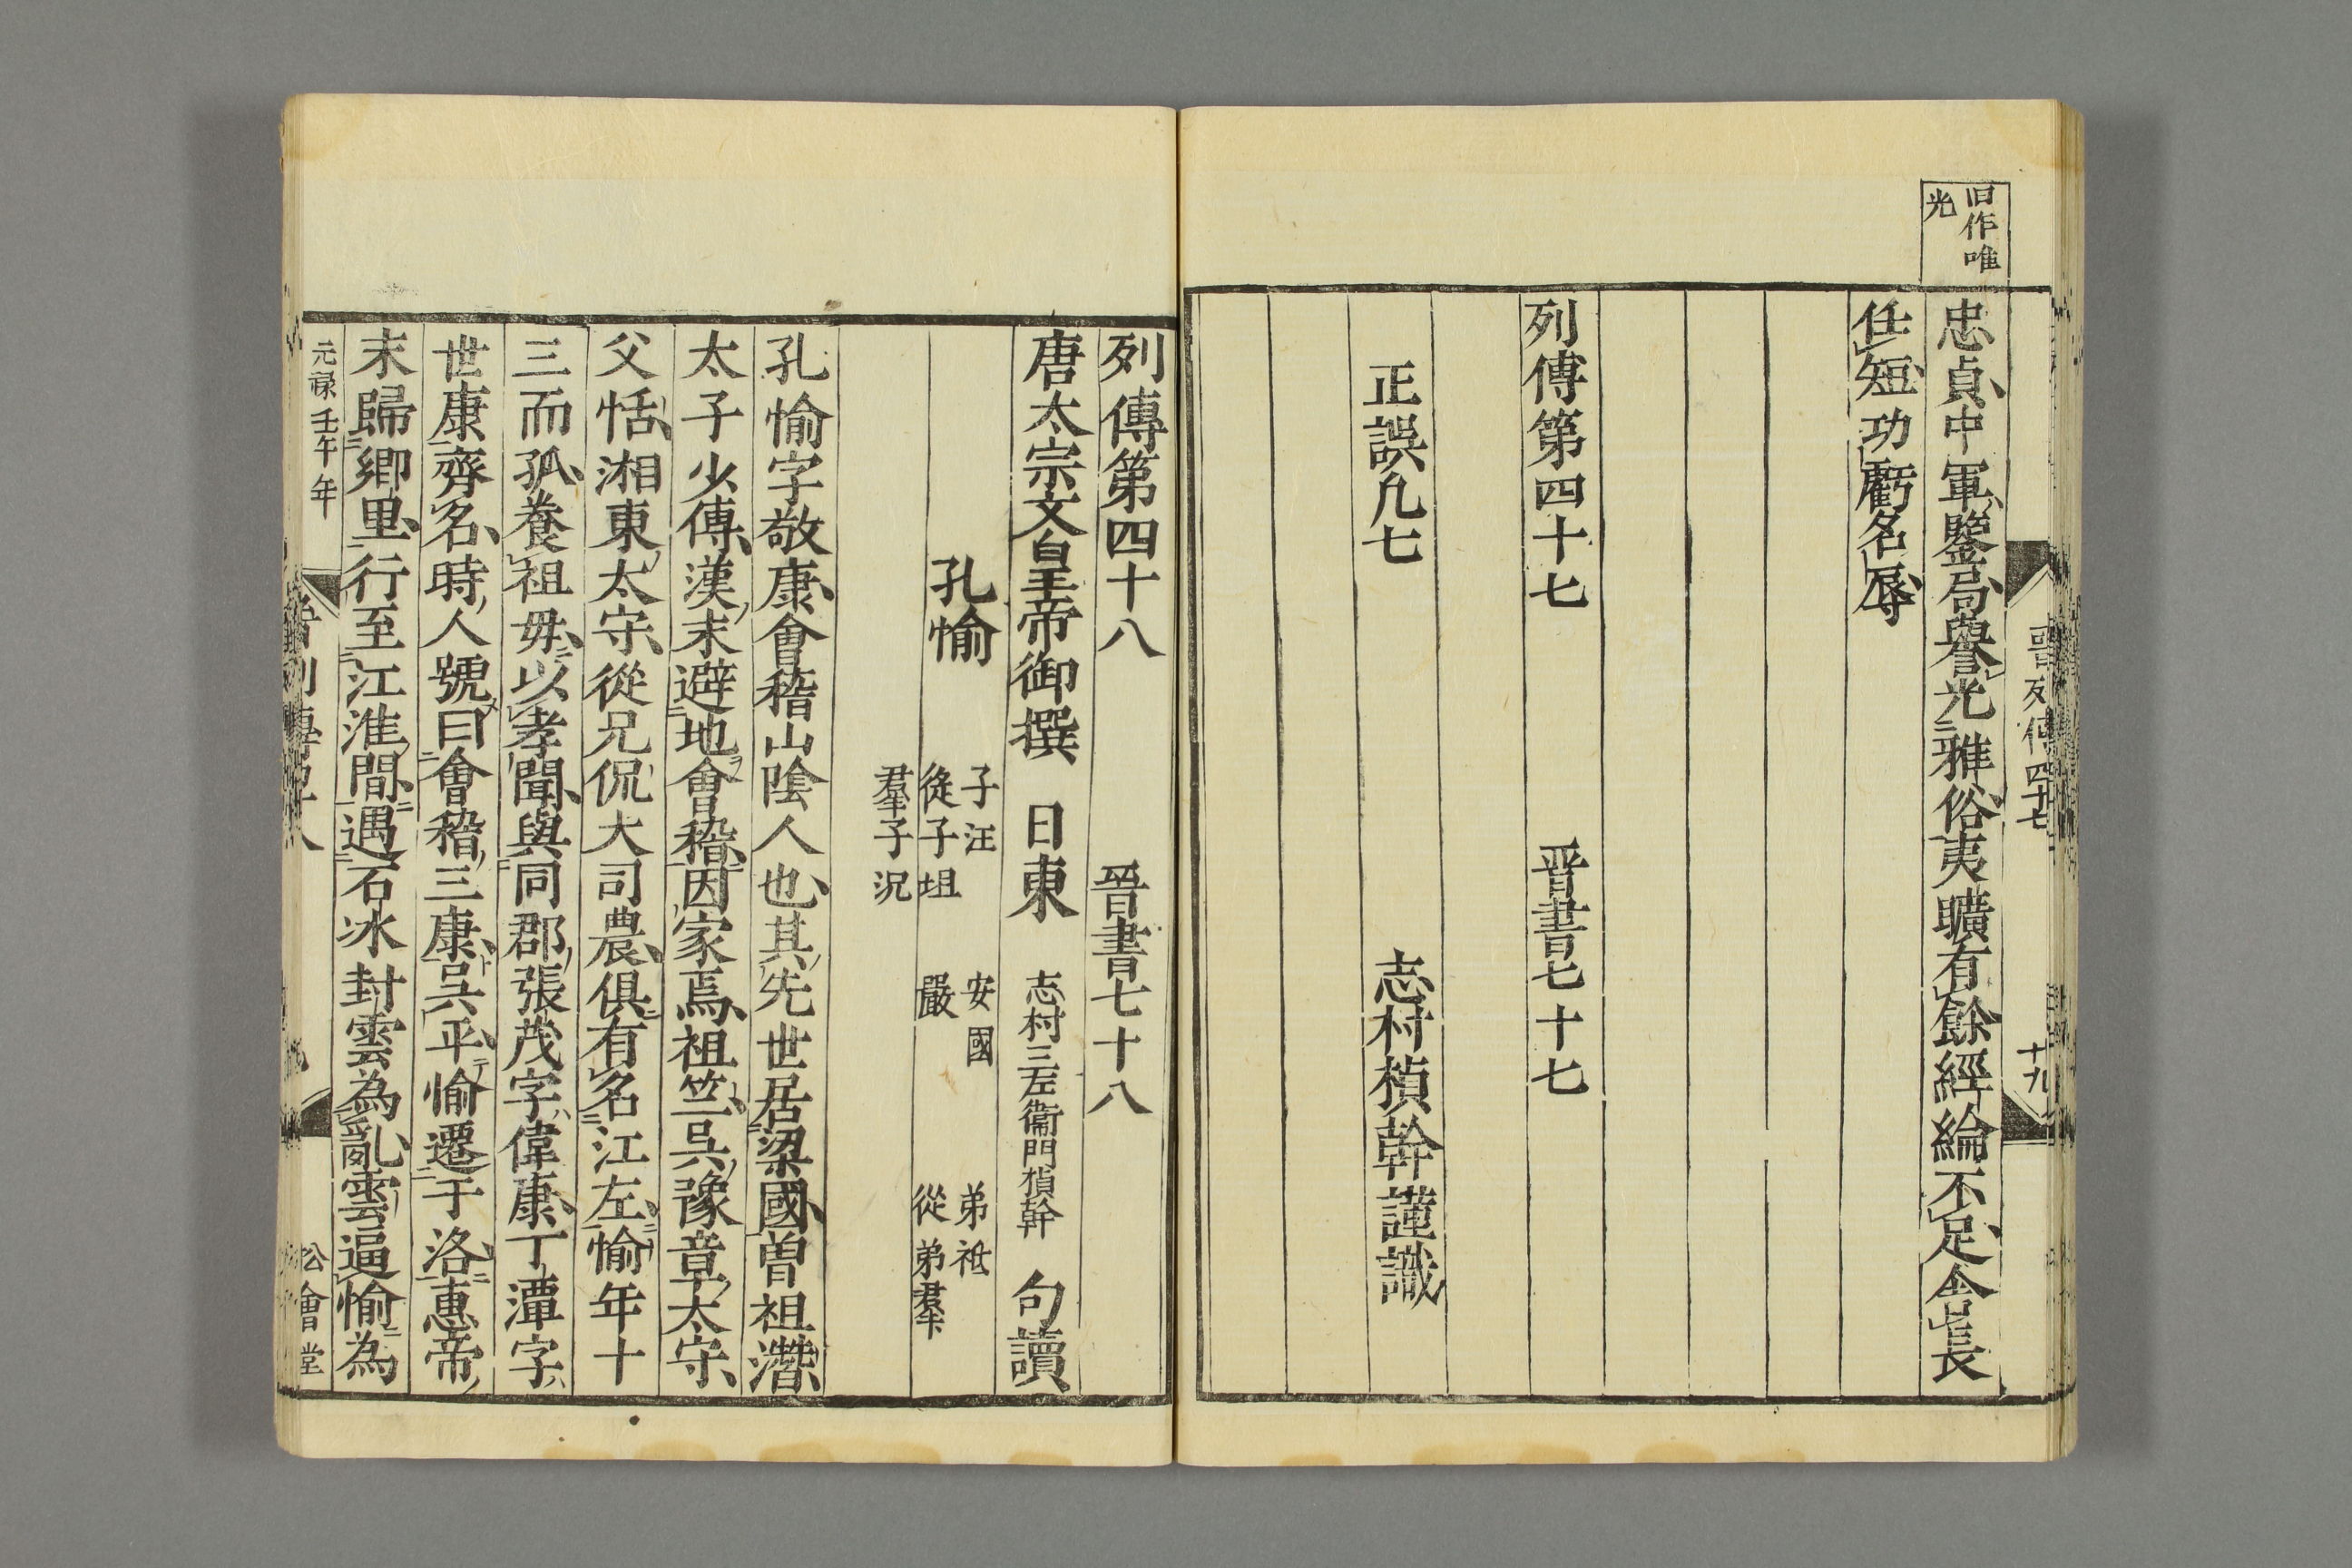 旧作唯
光
忠貞中軍鑒局譽光雅俗夷曠有餘經綸不足舍長
任短功虧名辱
列傳第四十七　晉書七十七
正誤凢七　志村楨幹謹識
晉列傳四十七　十九
列傳第四十八　晉書七十八
唐太宗文皇帝御撰　日東　志村三左衞門楨幹　句讀
孔愉
子汪　安國　弟祗
從子坦　嚴　從弟羣
羣子沉
孔愉字敬康會稽山陰人也其先世居梁國曽祖濳
太子少傅漢末避地會稽因家焉祖竺吳豫章太守
父恬湘東太守從兄侃大司農俱有名江左愉年十
三而孤養祖母以孝聞與同郡張茂字偉康丁潭字
世康齊名時人號曰會稽三康吳平愉遷于洛惠帝
末歸鄉里行至江淮間遇石冰封雲為亂雲逼愉為
元禄壬午年
晉列傳四十八
松會堂